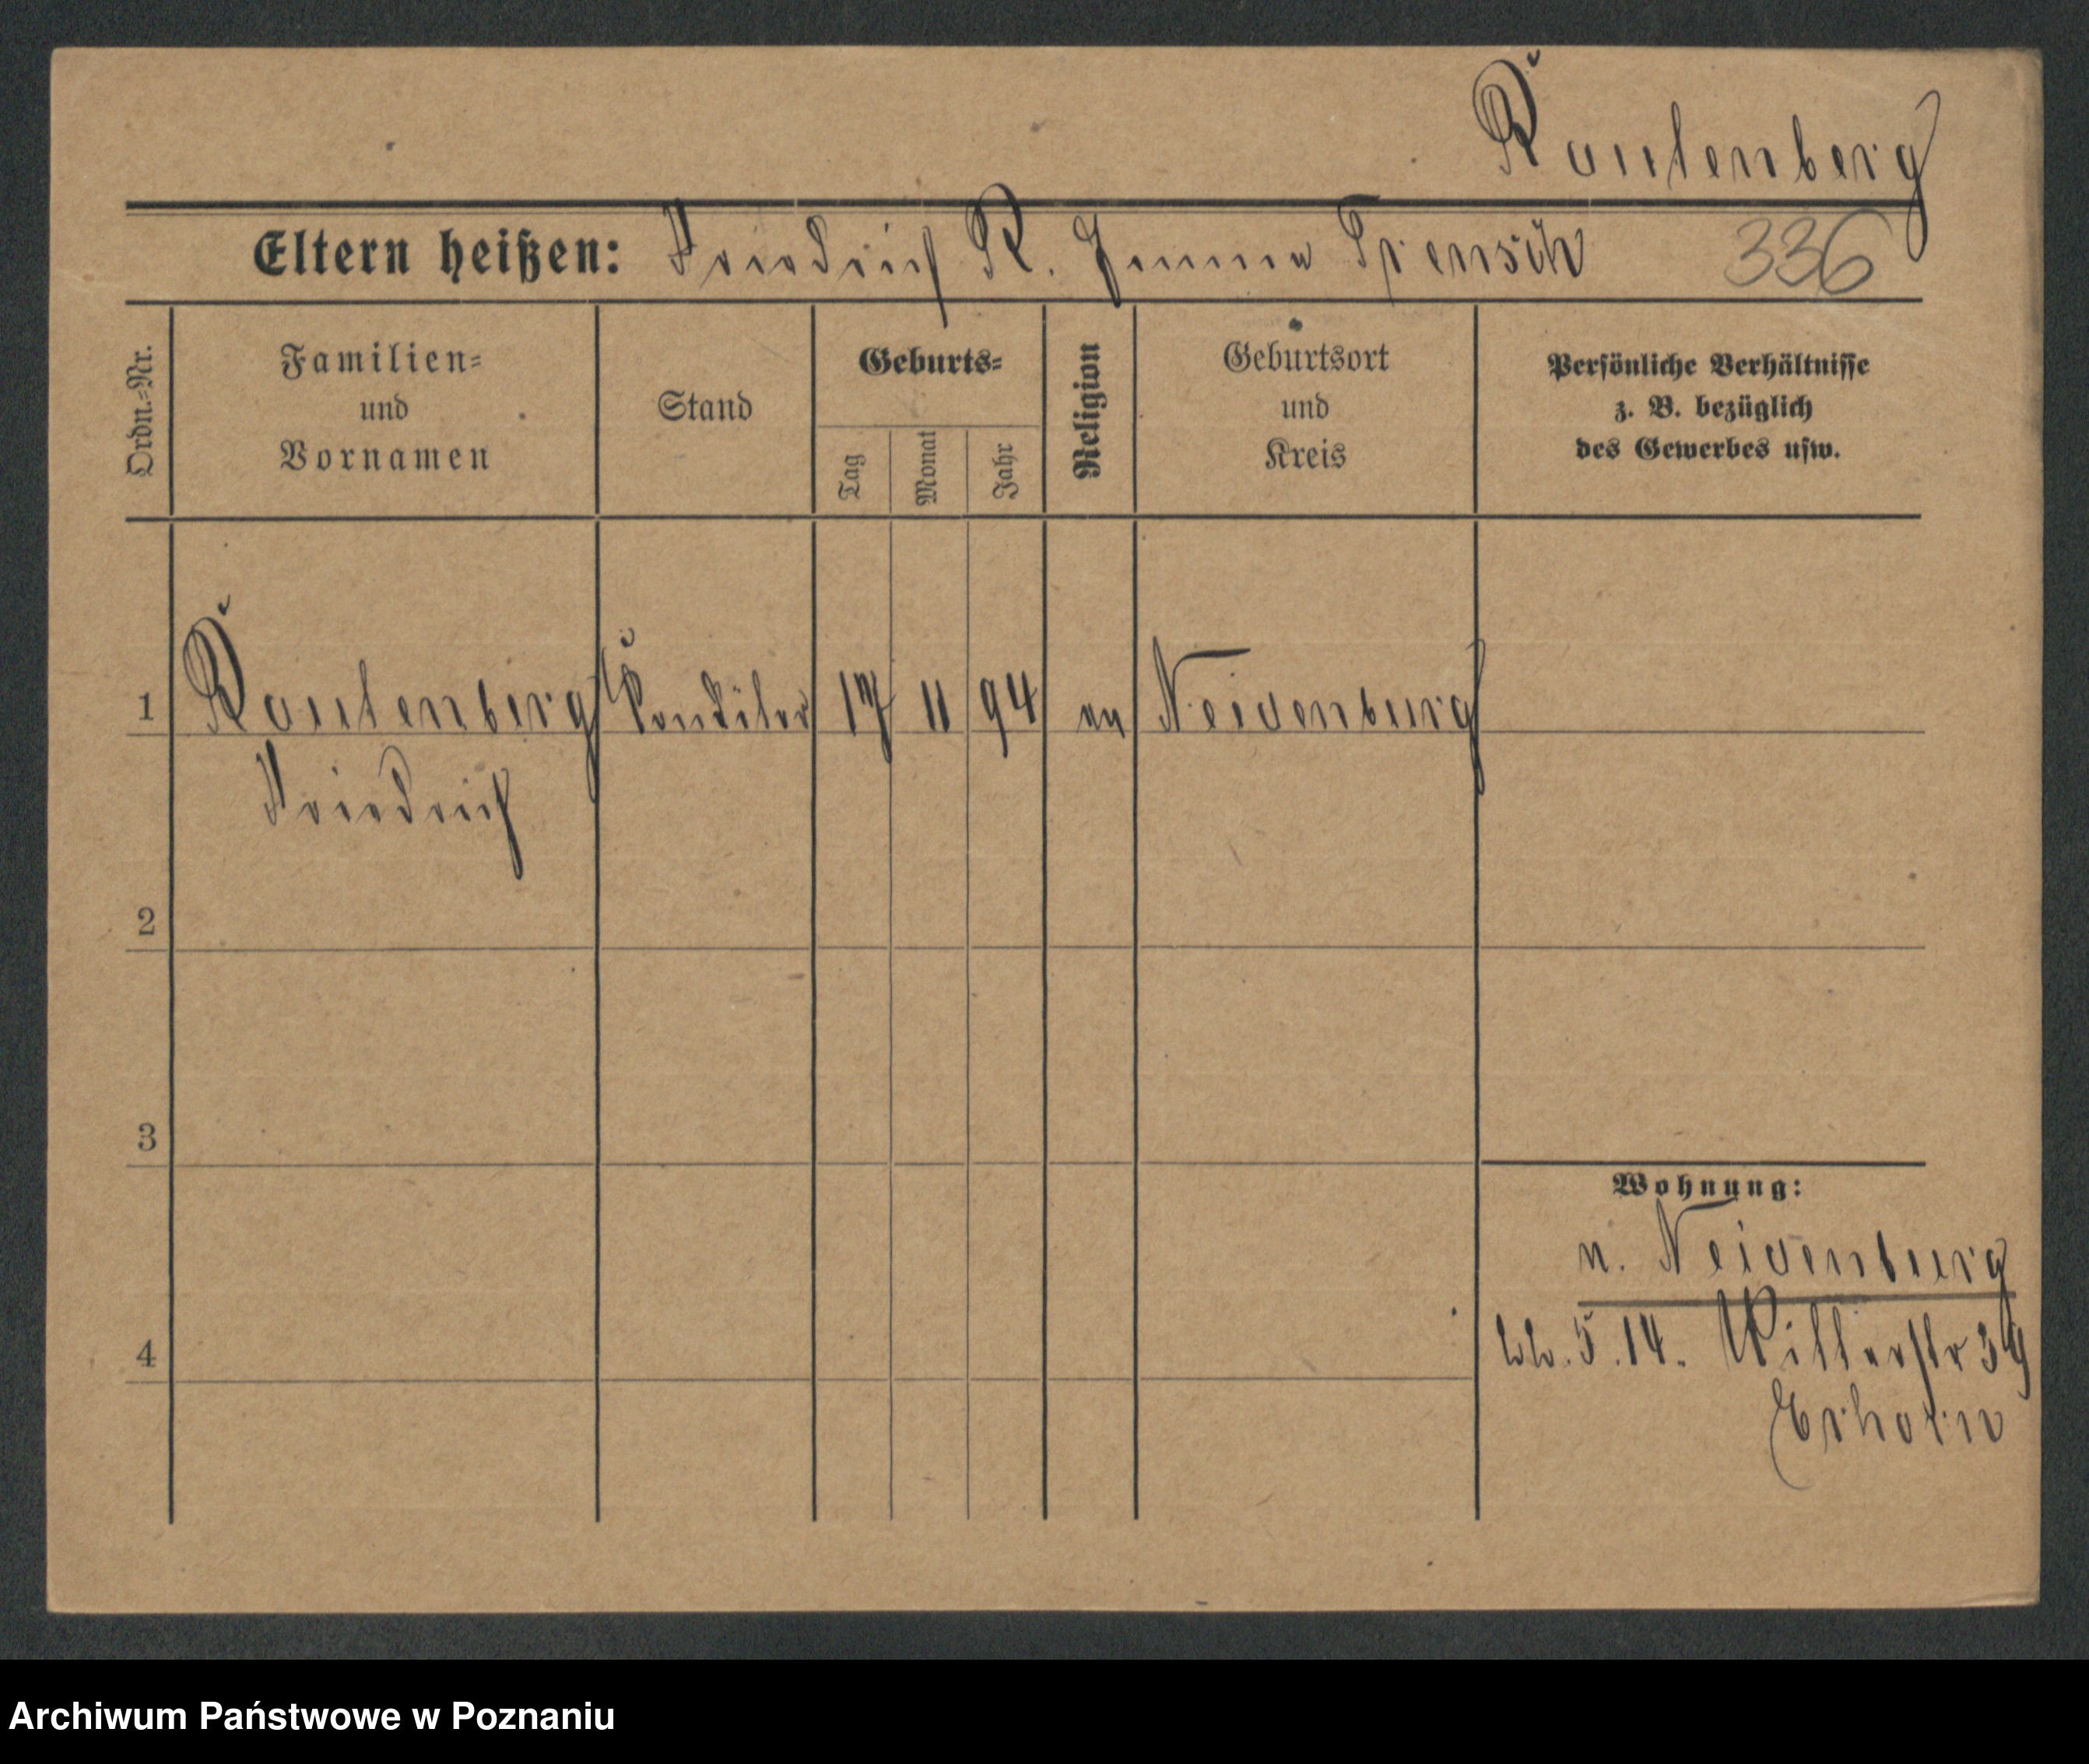 Rautenberg
Eltern heißen: Friedrich R. Emma
336
Ordn.-Nr.
Familien-
und
Vornamen
Stand
Geburts-
Tag
Monat
Jahr
Religion
Geburtsort
und
Kreis
Persönliche Verhältnisse
z. B. bezüglich
des Gewerbes usw.
1 Rautenberg Konditor 17 11 94 ev Neidenburg
Friedrich
2
3
Wohnung:
n. Neidenburg
5.14. Ritterstr 39
4
Archiwum Państwowe w Poznaniu